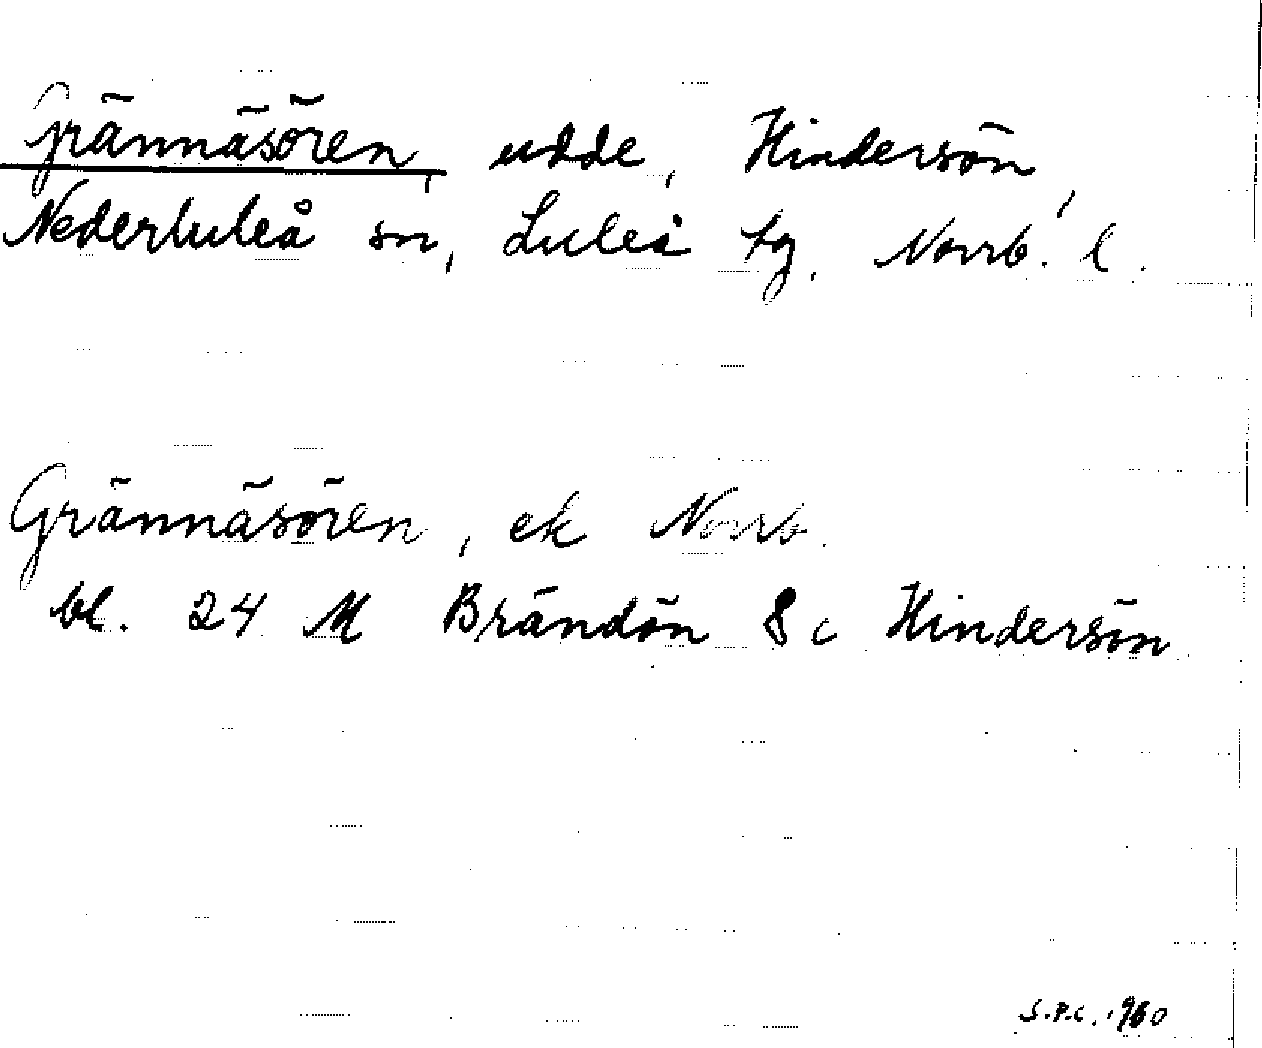 Grännäsören, udde, Hindersön,
Nederluleå sn, Luleå tg, Norrb. l.
Grännäsören, ek Norrb.
bl. 24 M Brändön 8c Hindersön
S.P.C. 1960